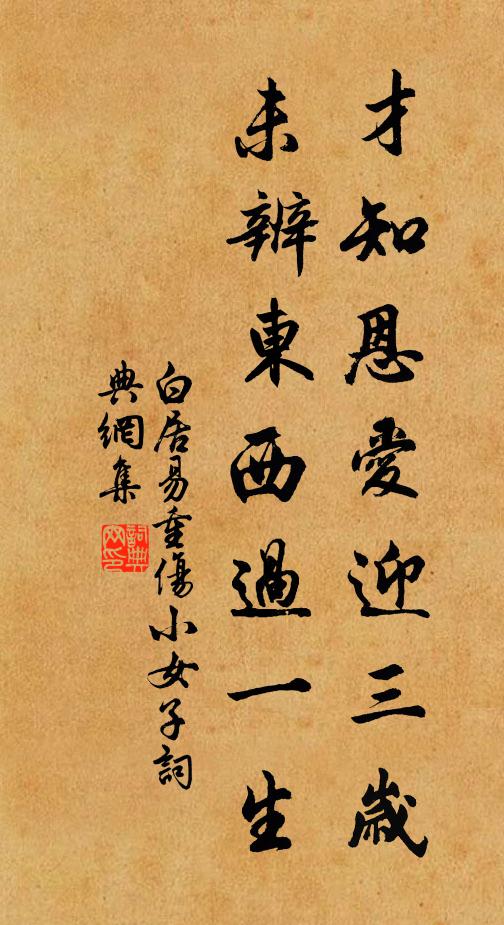 才知恩愛迎三歲
未辨東西過一生
白居易重傷小女子詞
典網集
詞典網印